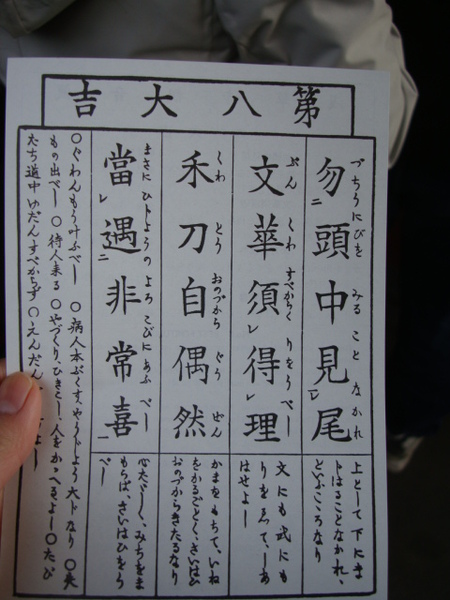 第八大吉
勿頭中見尾
づちうにびを みること なかれ
上として下にま
じはることなかれ、
といふこころなり
文華須得理
ぶん くわ すべからく りをうべし
文にも武にも
りをゑて、しあ
はせよし
禾刀自偶然
くわ とう おのづから ぐう ぜん
かまをもちて、いね
をかるごとく、さいはひ
おのづからきたるなり
當遇非常喜
まさに ひじようの よろこびに あふ べし
みちをま
もらば、さいはひをう
べし
○ぐわんもう叶ふべし ○病人本ぶくすやうじよう なり ○失
もの出べし ○待人来る ○やづくり、ひきこし、人をかゝへるよし ○たび
たち道中ゆだんすべからず ○えんだん